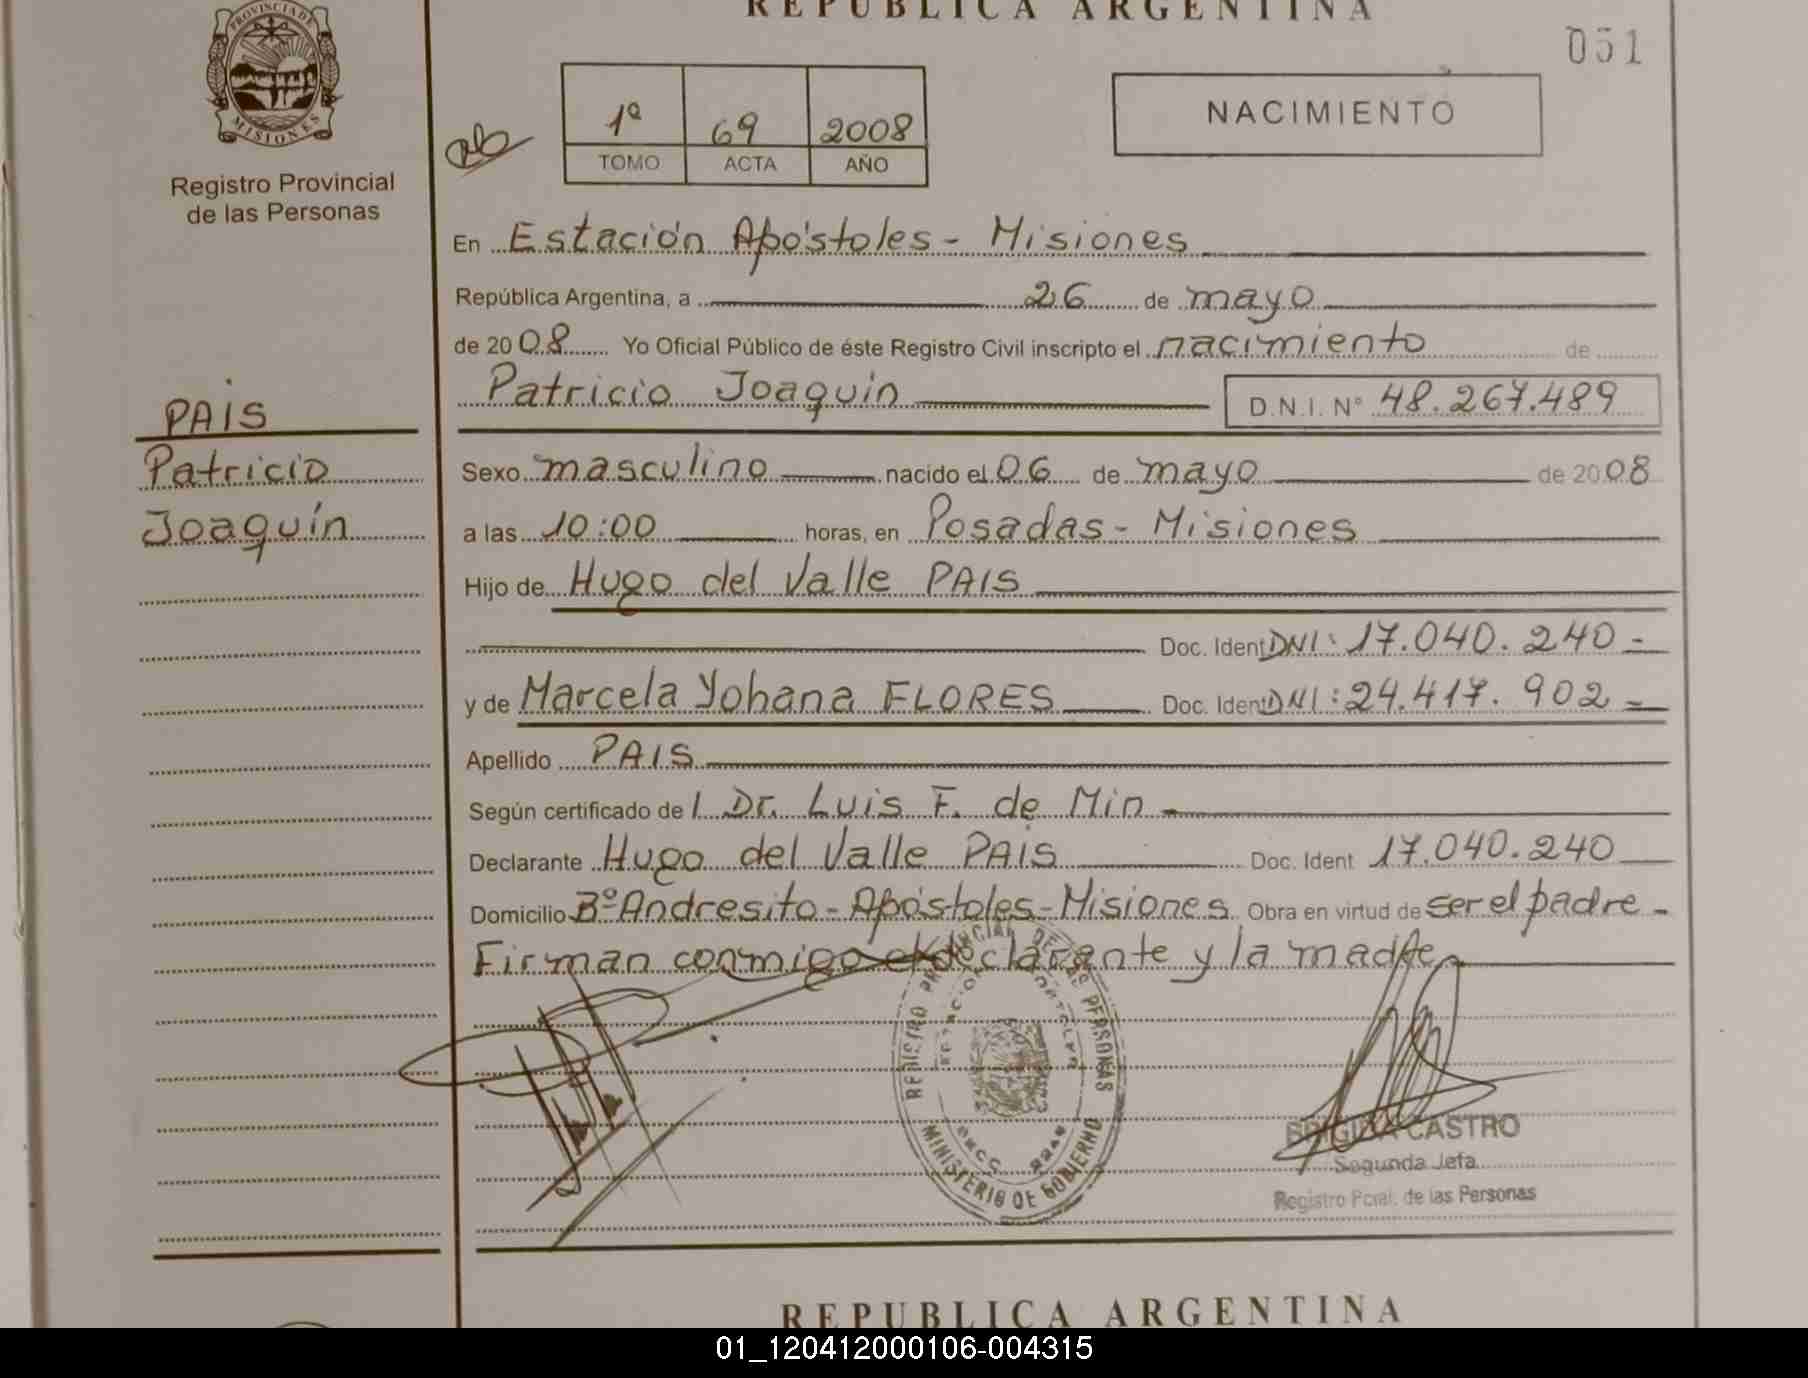 REPUBLICA ARGENTINA
051
PROVINCIA DE
MISIONES
Registro Provincial
de las Personas
1ª 69 2008
TOMO ACTA AÑO
NACIMIENTO
En Estación Apóstoles - Misiones
República Argentina, a 26 de mayo
de 2008 Yo Oficial Público de éste Registro Civil inscripto el nacimiento de
Patricio Joaquín D.N.I. Nº 48.267.489
PAIS
Patricio
Joaquín
Sexo masculino nacido el 06 de mayo de 2008
a las 10:00 horas, en Posadas - Misiones
Hijo de Hugo del Valle PAIS
Doc. Ident DNI: 17.040.240 -
y de Marcela Yohana FLORES Doc. Ident DNI: 24.417.902 -
Apellido PAIS
Según certificado de l Dr. Luis F. de Min -
Declarante Hugo del Valle PAIS Doc. Ident 17.040.240
Domicilio Bº Andresito - Apóstoles - Misiones Obra en virtud de ser el padre -
Firman conmigo el declarante y la madre
REGISTRO PROVINCIAL DE LAS PERSONAS
MINISTERIO DE GOBIERNO
BRIGIDA CASTRO
Segunda Jefa
Registro Pcial. de las Personas
REPUBLICA ARGENTINA
01_120412000106-004315